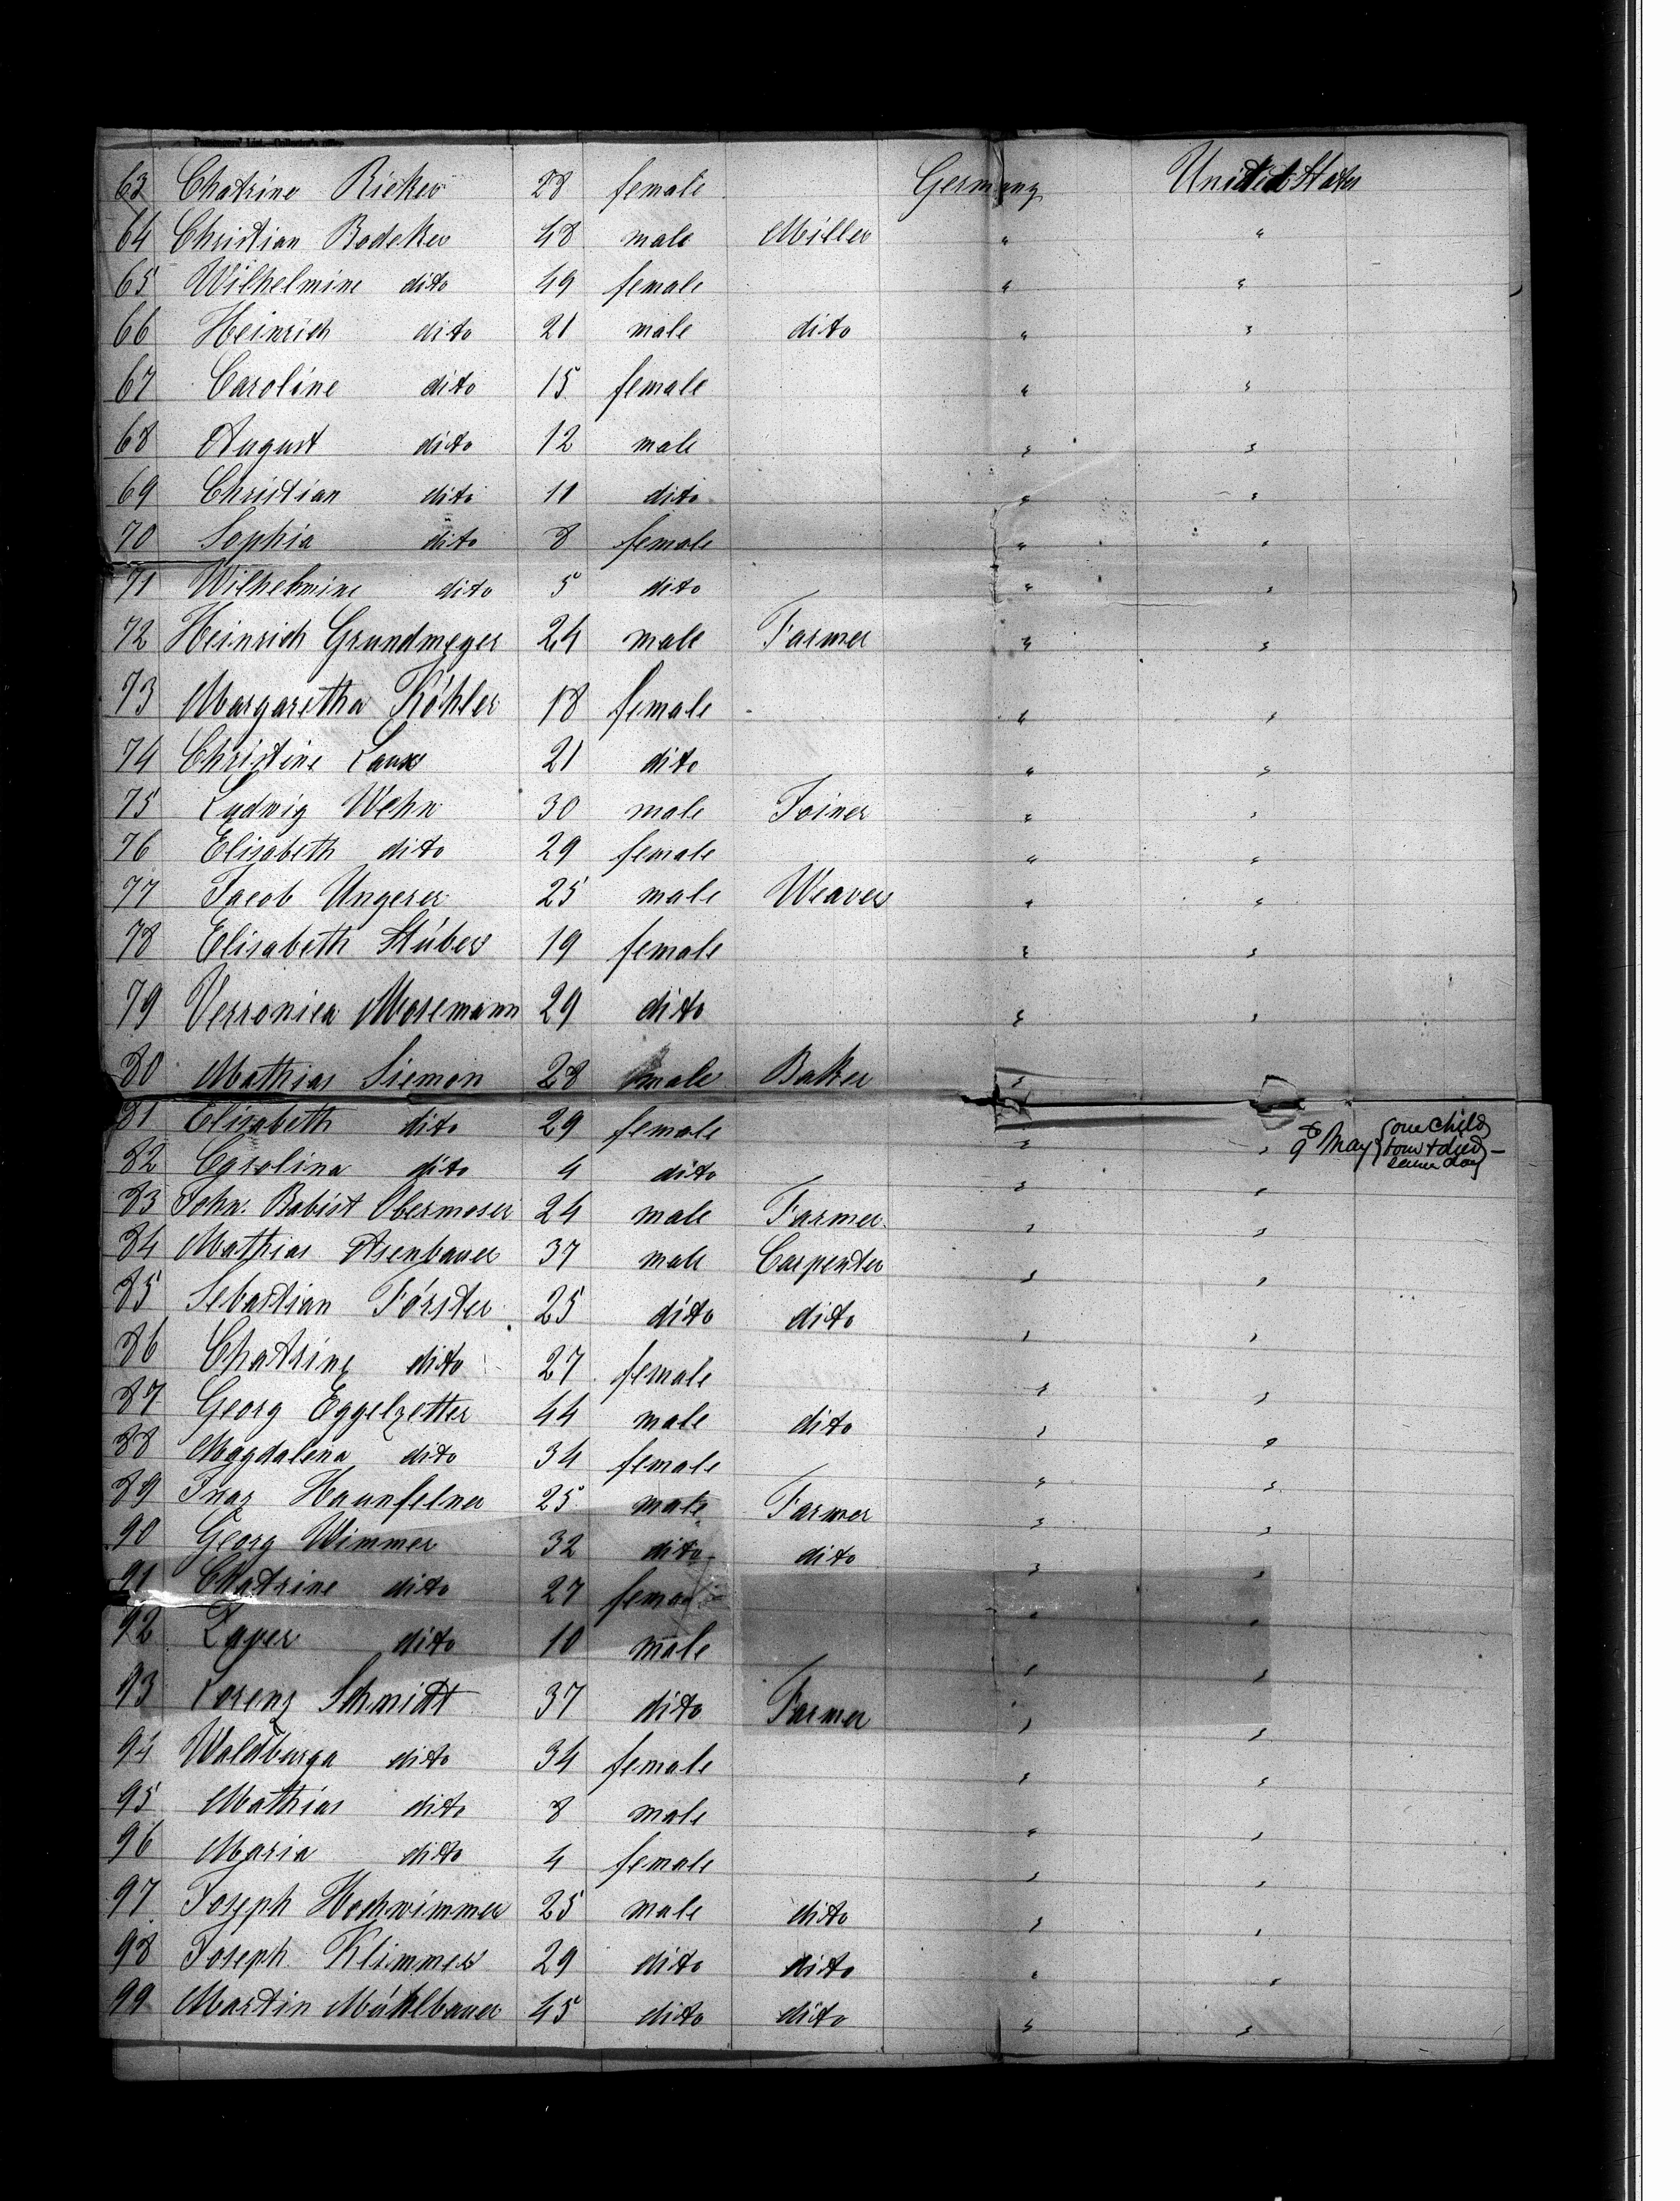 Passengers' List.—Collector's office
63 Chatrine Rieker 28 female Germany United States
64 Christian Bodeker 48 male Miller " "
65 Wilhelmine dito 49 female " "
66 Heinrich dito 21 male dito " "
67 Caroline dito 15 female " "
68 August dito 12 male " "
69 Christian dito 11 dito " "
70 Sophia dito 8 female " "
71 Wilhelmine dito 5 dito " "
72 Heinrich Grundmeyer 24 male Farmer " "
73 Margaretha Köhler 18 female " "
74 Christine Laux 21 dito " "
75 Ludwig Wehn 30 male Joiner " "
76 Elisabeth dito 29 female " "
77 Jacob Ungerer 25 male Weaver " "
78 Elisabeth Stüber 19 female " "
79 Verronica Mosemann 29 dito " "
80 Mathias Siemon 28 male Baker " "
81 Elisabeth dito 29 female " " 9th May one child born & died same day
82 Carolina dito 4 dito " "
83 John. Babist Obermoser 24 male Farmer " "
84 Mathias Asenbauer 37 male Carpenter " "
85 Sebastian Förster 25 dito dito " "
86 Chatrine dito 27 female " "
87 Georg Eggelzetter 44 male dito " "
88 Magdalena dito 34 female " "
89 Inaz Haunfelner 25 male Farmer " "
90 Georg Wimmer 32 dito dito " "
91 Chatrine dito 27 female " "
92 Xaver dito 10 male " "
93 Lorenz Schmidt 37 dito Farmer " "
94 Waldburga dito 34 female " "
95 Mathias dito 8 male " "
96 Maria dito 4 female " "
97 Joseph Hochwimmer 25 male dito " "
98 Joseph Klimmer 29 dito dito " "
99 Martin Mühlbauer 45 dito dito " "